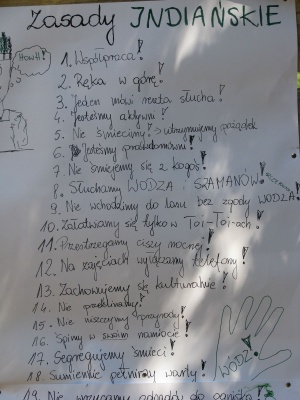 Zasady INDIAŃSKIE
HOWH!
1. Współpraca!
2. Ręka w górę!
3. Jeden mówi reszta słucha!
4. Jesteśmy aktywni!
5. Nie śmiecimy! > utrzymujemy porządek
6. Jesteśmy
7. Nie śmiejemy się z kogoś!
8. Słuchamy WODZA, SZAMANÓW!
9. Nie wchodzimy do lasu bez zgody WODZA!
10. Załatwiamy się tylko w Toi-Toi-ach!
11. Przestrzegamy ciszy nocnej!
12. Na zajęciach wyłączamy telefony!
13. Zachowujemy się kulturalnie!
14. Nie przeklinamy!
15. Nie niszczymy przyrody!
16. Śpimy w swoim namiocie!
17. Segregujemy śmieci!
18. Sumiennie pełnimy warty!
19. Nie wrzucamy odpadów do ogniska!
WÓDZ!